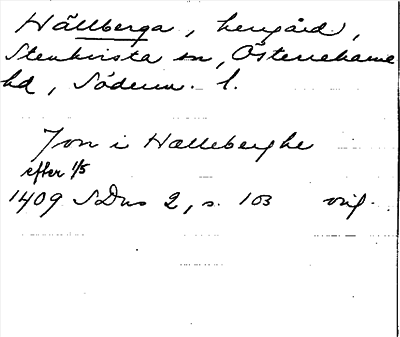 Hällberga, herrgård,
Stenkvista sn, Österrekarne
hd, Söderm. l.
Jon i Hælleberghe
efter 1/5
1409 SDns 2, s. 103 orig.